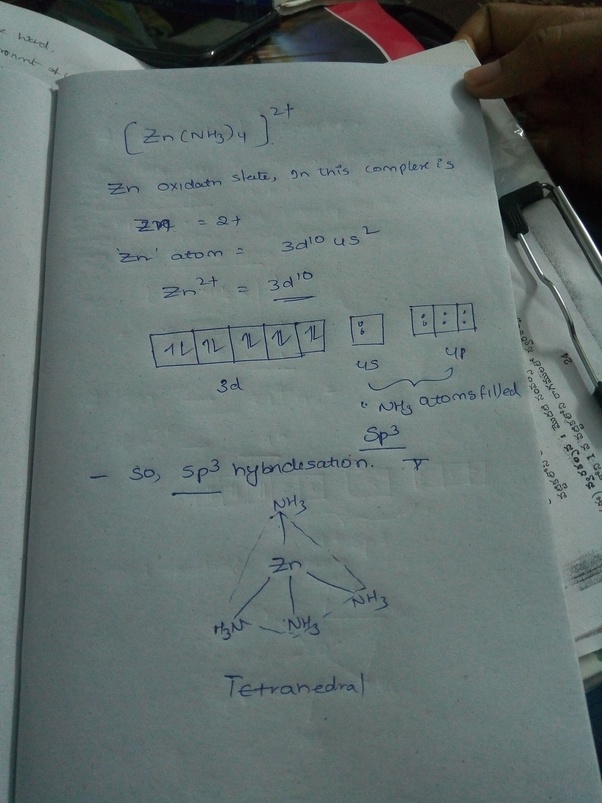 [Zn(NH3)4]2+
Zn oxidatn state, In this complex is
Zn = 2+
'Zn' atom = 3d10 4s2
Zn2+ = 3d10
3d
4s
4p
NH3 atoms filled
Sp3
- So, Sp3 hybridesation.
NH3
Zn
NH3
H3N
NH3
Tetrahedral